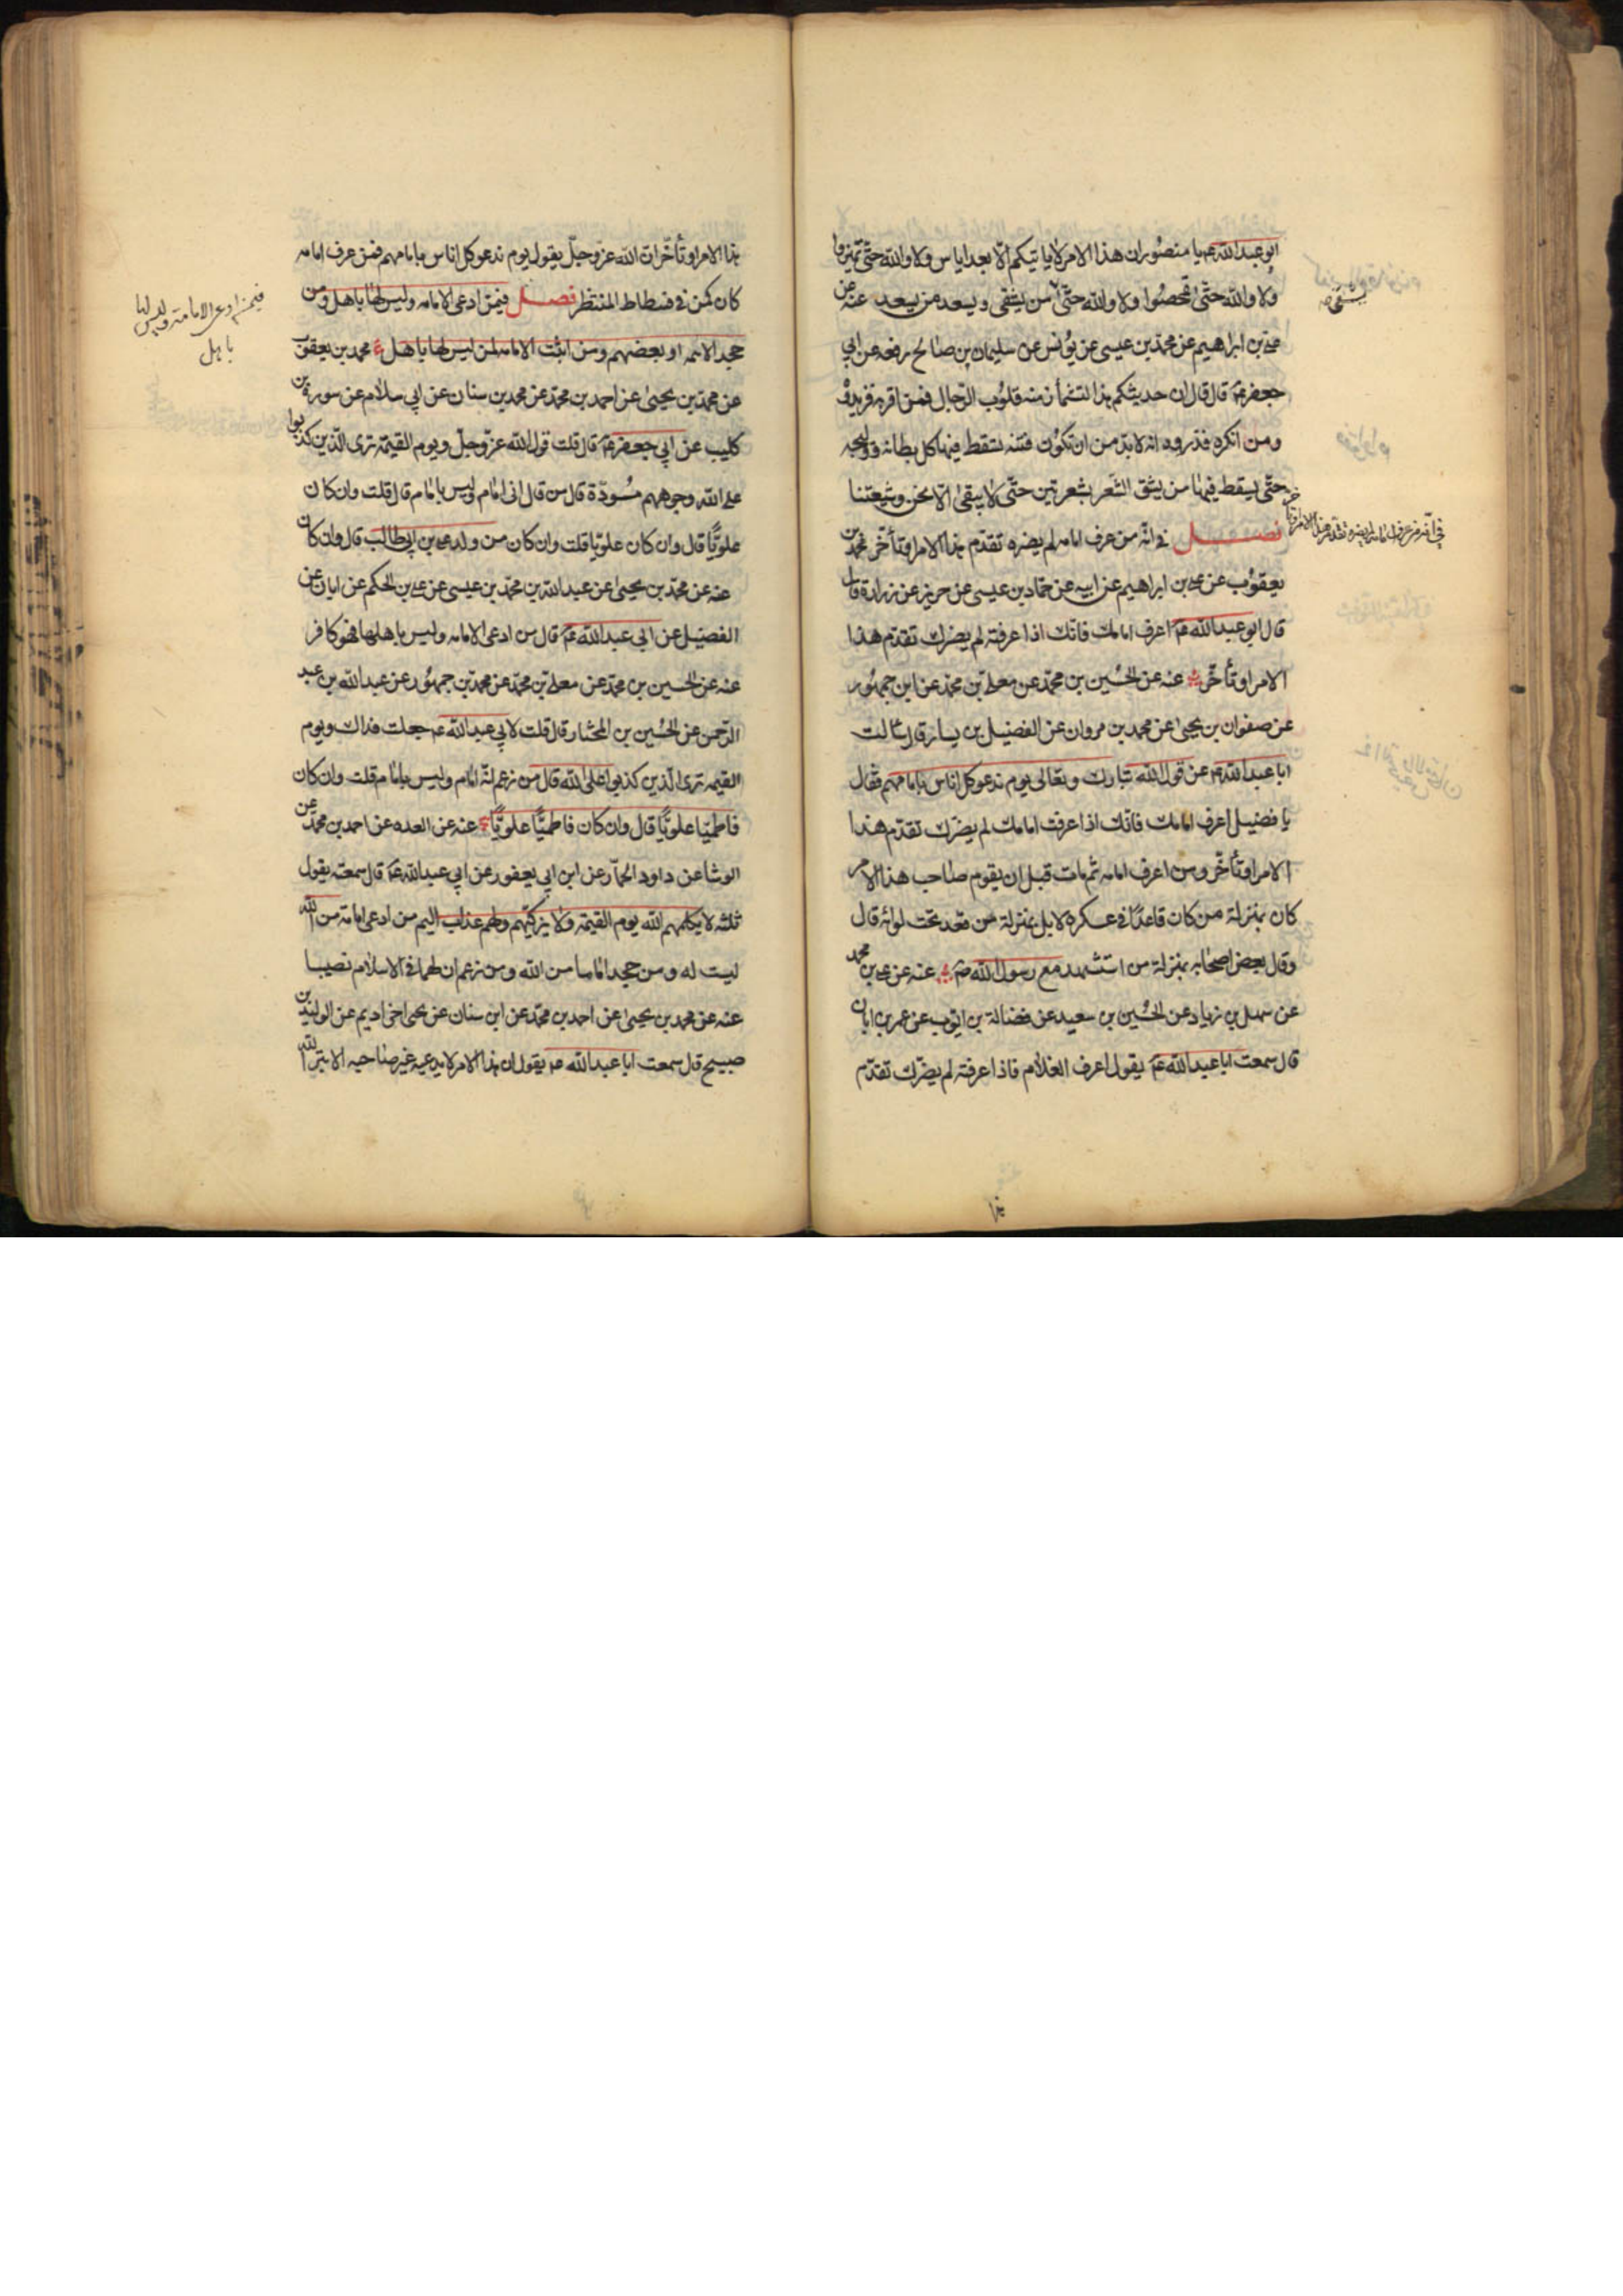 ابو عبد الله عم يا منصور ان هذا الامر لا ياتيكم الا بعد اياس ولا والله حتى تميزوا
ولا والله حتى تمحصوا ولا والله حتى من يشقى ويسعد من يسعد عنه عن
يشقى صح
على بن ابراهيم عن محمد بن عيسى عن يونس عن سليمان بن صالح رفعه عن ابي
جعفر عم قال قال ان حديثكم هذا لتشمأز منه قلوب الرجال فمن اقر به فزيدوه
ومن انكره فذروه انه لابد من ان تكون فتنه يسقط فيها كل بطانه ووليجه
حتى يسقط فيها من يشق الشعر بشعرتين حتى لا يبقى الا نحن وشيعتنا
فصل في انه من عرف امامه لم يضره تقدم هذا الامر او تأخر محمد بن
في انه من عرف امامه لم يضره تقدم هذا الامر او تأخر
يعقوب عن على بن ابراهيم عن ابيه عن حماد بن عيسى عن حريز عن زرارة قال
قال ابو عبد الله عم اعرف امامك فانك اذا عرفته لم يضرك تقدم هذا
الامر او تأخر عنه عن الحسين بن محمد عن معلى بن محمد عن ابن جمهور
عن صفوان بن يحيى عن محمد بن مروان عن الفضيل بن يسار قال سالت
ابا عبد الله عم عن قول الله تبارك وتعالى يوم ندعو كل اناس بامامهم فقال
يا فضيل اعرف امامك فانك اذا عرفت امامك لم يضرك تقدم هذا
الامر او تأخر ومن اعرف امامه ثم مات قبل ان يقوم صاحب هذا الامر
كان بمنزلة من كان قاعدا في عسكره لا بل بمنزلة من قعد تحت لوائه قال
وقال بعض اصحابه بمنزلة من استشهد مع رسول الله ص عنه عن على بن محمد
عن سهل بن زياد عن الحسين بن سعيد عن فضالة بن ايوب عن عمر بن ابان
قال سمعت ابا عبد الله عم يقول اعرف العلام فاذا عرفته لم يضرك تقدم
هذا
هذا الامر او تأخر ان الله عز وجل يقول يوم ندعو كل اناس بامامهم فمن عرف امامه
كان كمن في فسطاط المنتظر فصل فيمن ادعى الامامه وليس لها باهل ومن
فيمن ادعى الامامة وليس لها
باهل
جحد الائمه او بعضهم ومن اثبت الامامه لمن ليس لها باهل محمد بن يعقوب
عن محمد بن يحيى عن احمد بن محمد عن محمد بن سنان عن ابي سلام عن سورة بن
كليب عن ابي جعفر عم قال قلت قول الله عز وجل ويوم القيمة ترى الذين كذبوا
على الله وجوههم مسودة قال من قال انى امام وليس بامام قال قلت وان كان
علويا قال وان كان علويا قلت وان كان من ولد على بن ابي طالب قال وان كان
عنه عن محمد بن يحيى عن عبد الله بن محمد بن عيسى عن على بن الحكم عن ابان عن
الفضيل عن ابي عبد الله عم قال من ادعى الامامه وليس باهلها فهو كافر
عنه عن الحسين بن محمد عن معلى بن محمد عن محمد بن جمهور عن عبد الله بن عبد
الرحمن عن الحسين بن المختار قال قلت لابي عبد الله عم جعلت فداك ويوم
القيمه ترى الذين كذبوا على الله قال من زعم انه امام وليس بامام قلت وان كان
فاطميا علويا قال وان كان فاطميا علويا عنه عن العده عن احمد بن محمد عن
الوشا عن داود الحمار عن ابن ابي يعفور عن ابي عبد الله عم قال سمعته يقول
ثلثه لا يكلمهم الله يوم القيمة ولا يزكيهم ولهم عذاب اليم من ادعى امامة من الله
ليست له ومن جحد اماما من الله ومن زعم ان لهما في الاسلام نصيبا
عنه عن محمد بن يحيى عن احمد بن محمد عن ابن سنان عن يحيى اخى اديم عن الوليد بن
صبيح قال سمعت ابا عبد الله عم يقول ان هذا الامر لا يدعيه غير صاحبه الا بتر الله